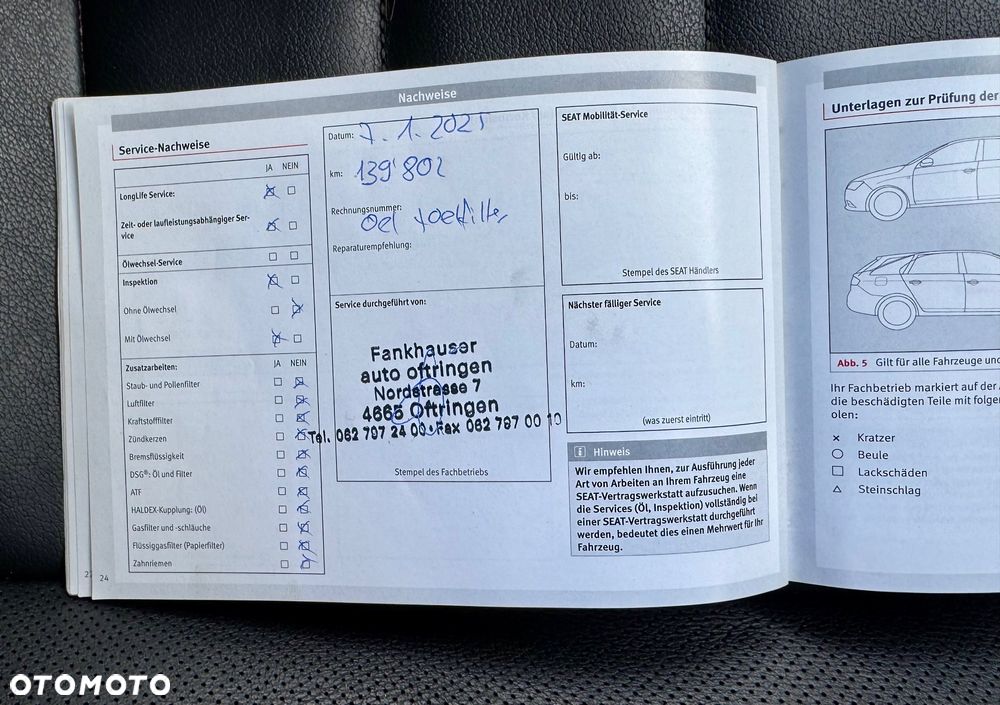 Nachweise
Service-Nachweise
JA NEIN
LongLife Service:
Zeit- oder laufleistungsabhängiger Ser-
vice
Ölwechsel-Service
Inspektion
Ohne Ölwechsel
Mit Ölwechsel
Zusatzarbeiten: JA NEIN
Staub- und Pollenfilter
Luftfilter
Kraftstofffilter
Zündkerzen
Bremsflüssigkeit
DSG®: Öl und Filter
ATF
HALDEX-Kupplung: (Öl)
Gasfilter und -schläuche
Flüssiggasfilter (Papierfilter)
Zahnriemen
24
Datum: 7.1.2021
km: 139'802
Rechnungsnummer:
Oel + Oelfilter
Reparaturempfehlung:
Service durchgeführt von:
Fankhauser
auto oftringen
Nordstrasse 7
4665 Oftringen
Tel. 062 797 24 00 · Fax 062 797 00 10
Stempel des Fachbetriebs
SEAT Mobilität-Service
Gültig ab:
bis:
Stempel des SEAT Händlers
Nächster fälliger Service
Datum:
km:
(was zuerst eintritt)
i Hinweis
Wir empfehlen Ihnen, zur Ausführung jeder
Art von Arbeiten an Ihrem Fahrzeug eine
SEAT-Vertragswerkstatt aufzusuchen. Wenn
die Services (Öl, Inspektion) vollständig bei
einer SEAT-Vertragswerkstatt durchgeführt
werden, bedeutet dies einen Mehrwert für Ihr
Fahrzeug.
Unterlagen zur Prüfung der
Abb. 5 Gilt für alle Fahrzeuge und
Ihr Fachbetrieb markiert auf der
die beschädigten Teile mit folgen
olen:
× Kratzer
○ Beule
□ Lackschäden
△ Steinschlag
OTOMOTO